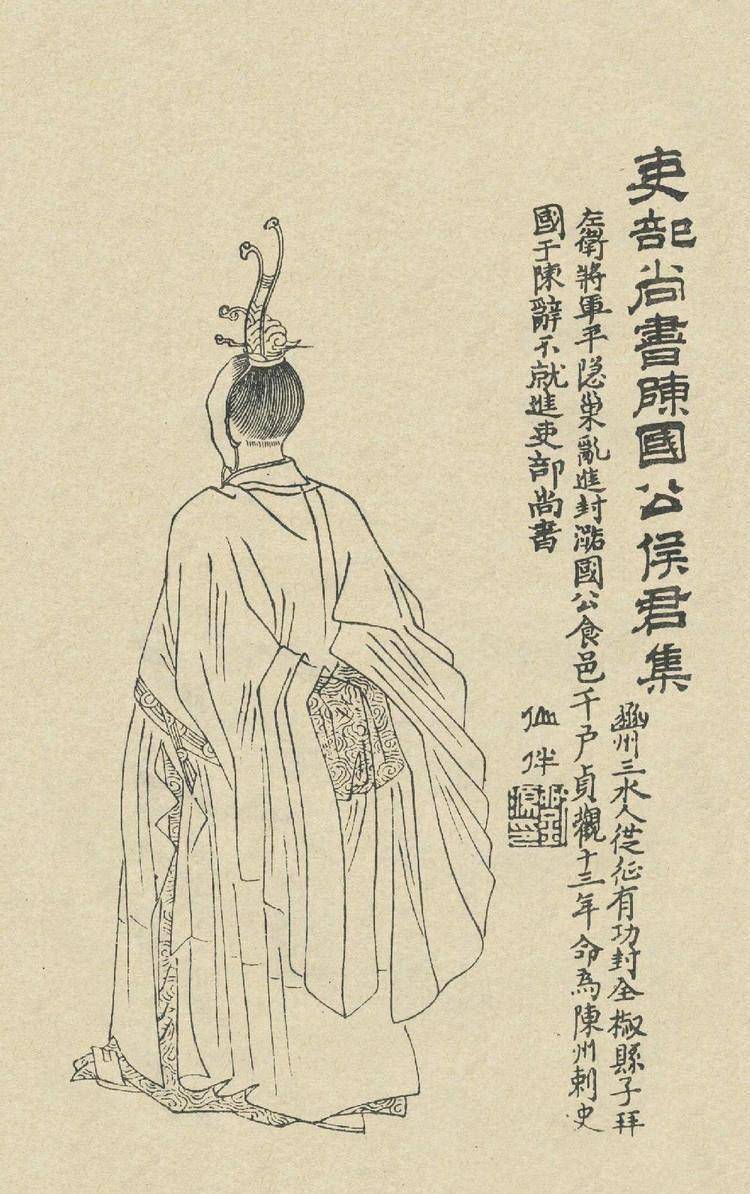 吏部尚書陳國公侯君集
豳州三水人從征有功封全椒縣子拜
左衛將軍平隐巢亂進封潞國公食邑千戶貞觀十三年命為陳州刺史
國于陳辭不就進吏部尚書
仙伴